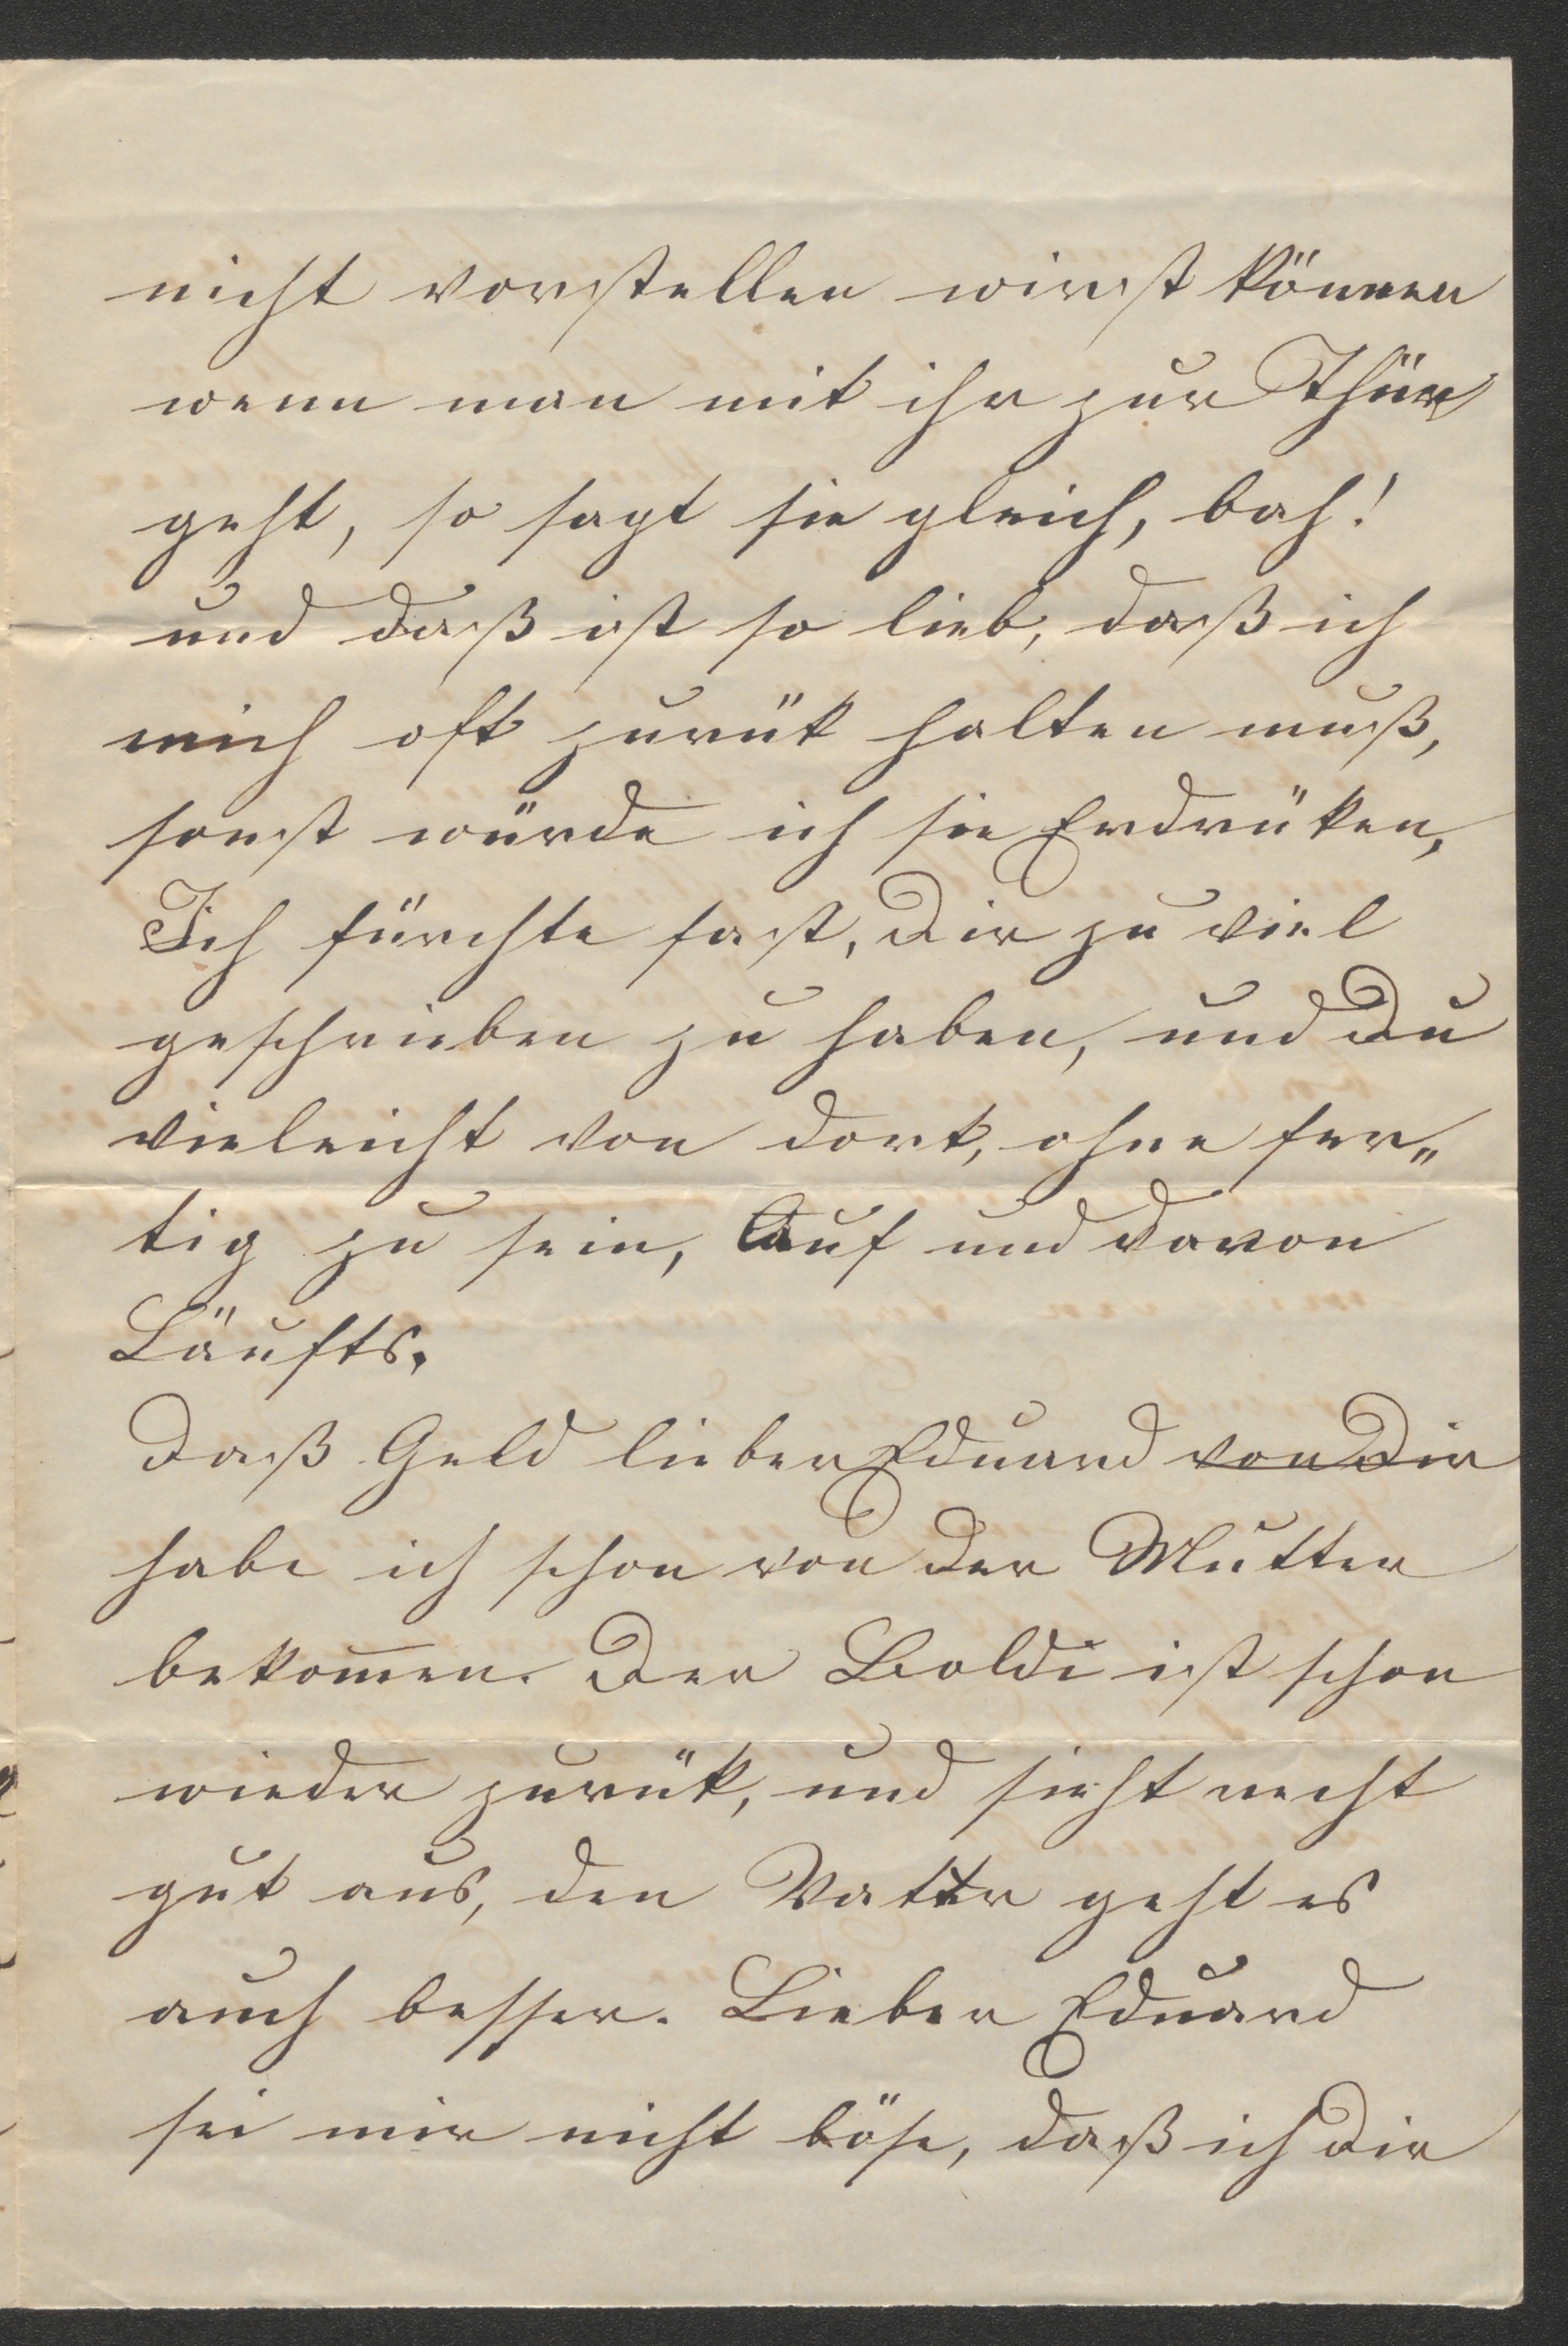 nicht vorstellen wirst können
wenn man mit ihr zur Thür
geht, so sagt sie gleich, bah!
und daß ist so lieb, daß ich
mich oft zurük halten muß,
sonst würde ich sie Erdrüken,
Ich fürchte fast, Dir zu viel
geschrieben zu haben, und Du
vieleicht von dort, ohne fer„
tig zu sein, Auf und davon
Läufts.
Daß Geld lieber Eduard von Dir
habe ich schon von der Mutter
bekom̄en. Der Boldi ist schon
wieder zurük, und sieht recht
gut aus, den Vatter geht es
auch besser. Lieber Eduard
sei mir nicht böse, daß ich Dir